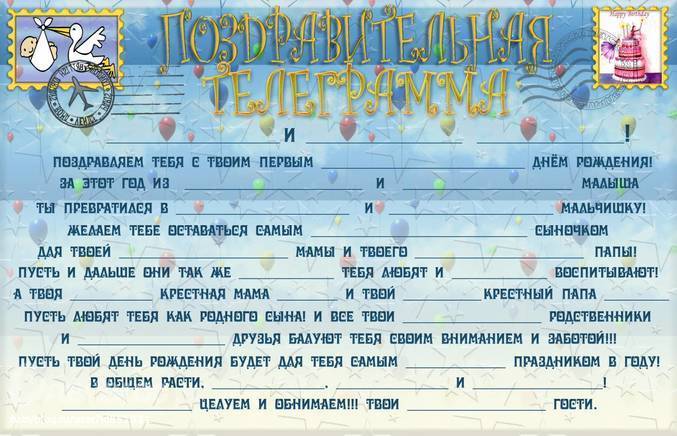 Happy Birthday
"ПОЗДРАВИТЕЛЬНАЯ
ТЕЛЕГРАММА"
____________ И ____________ ____________!
ПОЗДРАВЛЯЕМ ТЕБЯ С ТВОИМ ПЕРВЫМ ____________ ДНЁМ РОЖДЕНИЯ!
ЗА ЭТОТ ГОД ИЗ ____________ И ____________ МАЛЫША
ТЫ ПРЕВРАТИЛСЯ В ____________ И ____________ МАЛЬЧИШКУ!
ЖЕЛАЕМ ТЕБЕ ОСТАВАТЬСЯ САМЫМ ____________ СЫНОЧКОМ
ДЛЯ ТВОЕЙ ____________ МАМЫ И ТВОЕГО ____________ ПАПЫ!
ПУСТЬ И ДАЛЬШЕ ОНИ ТАК ЖЕ ____________ ТЕБЯ ЛЮБЯТ И ____________ ВОСПИТЫВАЮТ!
А ТВОЯ ____________ КРЕСТНАЯ МАМА ____________ И ТВОЙ ____________ КРЕСТНЫЙ ПАПА ____________
ПУСТЬ ЛЮБЯТ ТЕБЯ КАК РОДНОГО СЫНА! И ВСЕ ТВОИ ____________ РОДСТВЕННИКИ
И ____________ ДРУЗЬЯ БАЛУЮТ ТЕБЯ СВОИМ ВНИМАНИЕМ И ЗАБОТОЙ!!!
ПУСТЬ ТВОЙ ДЕНЬ РОЖДЕНИЯ БУДЕТ ДЛЯ ТЕБЯ САМЫМ ____________ ПРАЗДНИКОМ В ГОДУ!
В ОБЩЕМ РАСТИ, ____________, ____________ И ____________!
____________ ЦЕЛУЕМ И ОБНИМАЕМ!!! ТВОИ ____________ ГОСТИ.